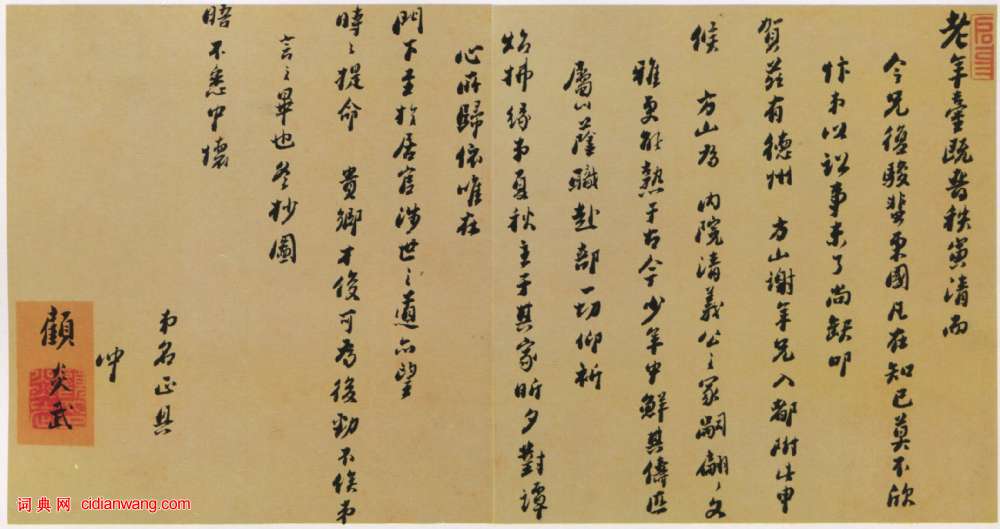 老年臺既晉秩寅清而
令兄復駿蜚東國凡在知己莫不欣
忭弟以訟事未了尚缺叩
賀茲有德州 方山謝年兄入都附此申
候 方山為 內院清義公之冢嗣翩〻文
雅更能熟于古今少年中鮮其儔匹
屬以蔭職赴部一切仰祈
炤拂緣弟夏秋主于其家昕夕對譚
心所歸依唯在
門下至於居官涉世之道亦望
時〻提命 貴鄉才俊可為後勁不俟弟
言之畢也冬杪圖
晤不悉中懷
弟名正具
沖
顧炎武
词典网 cidianwang.com